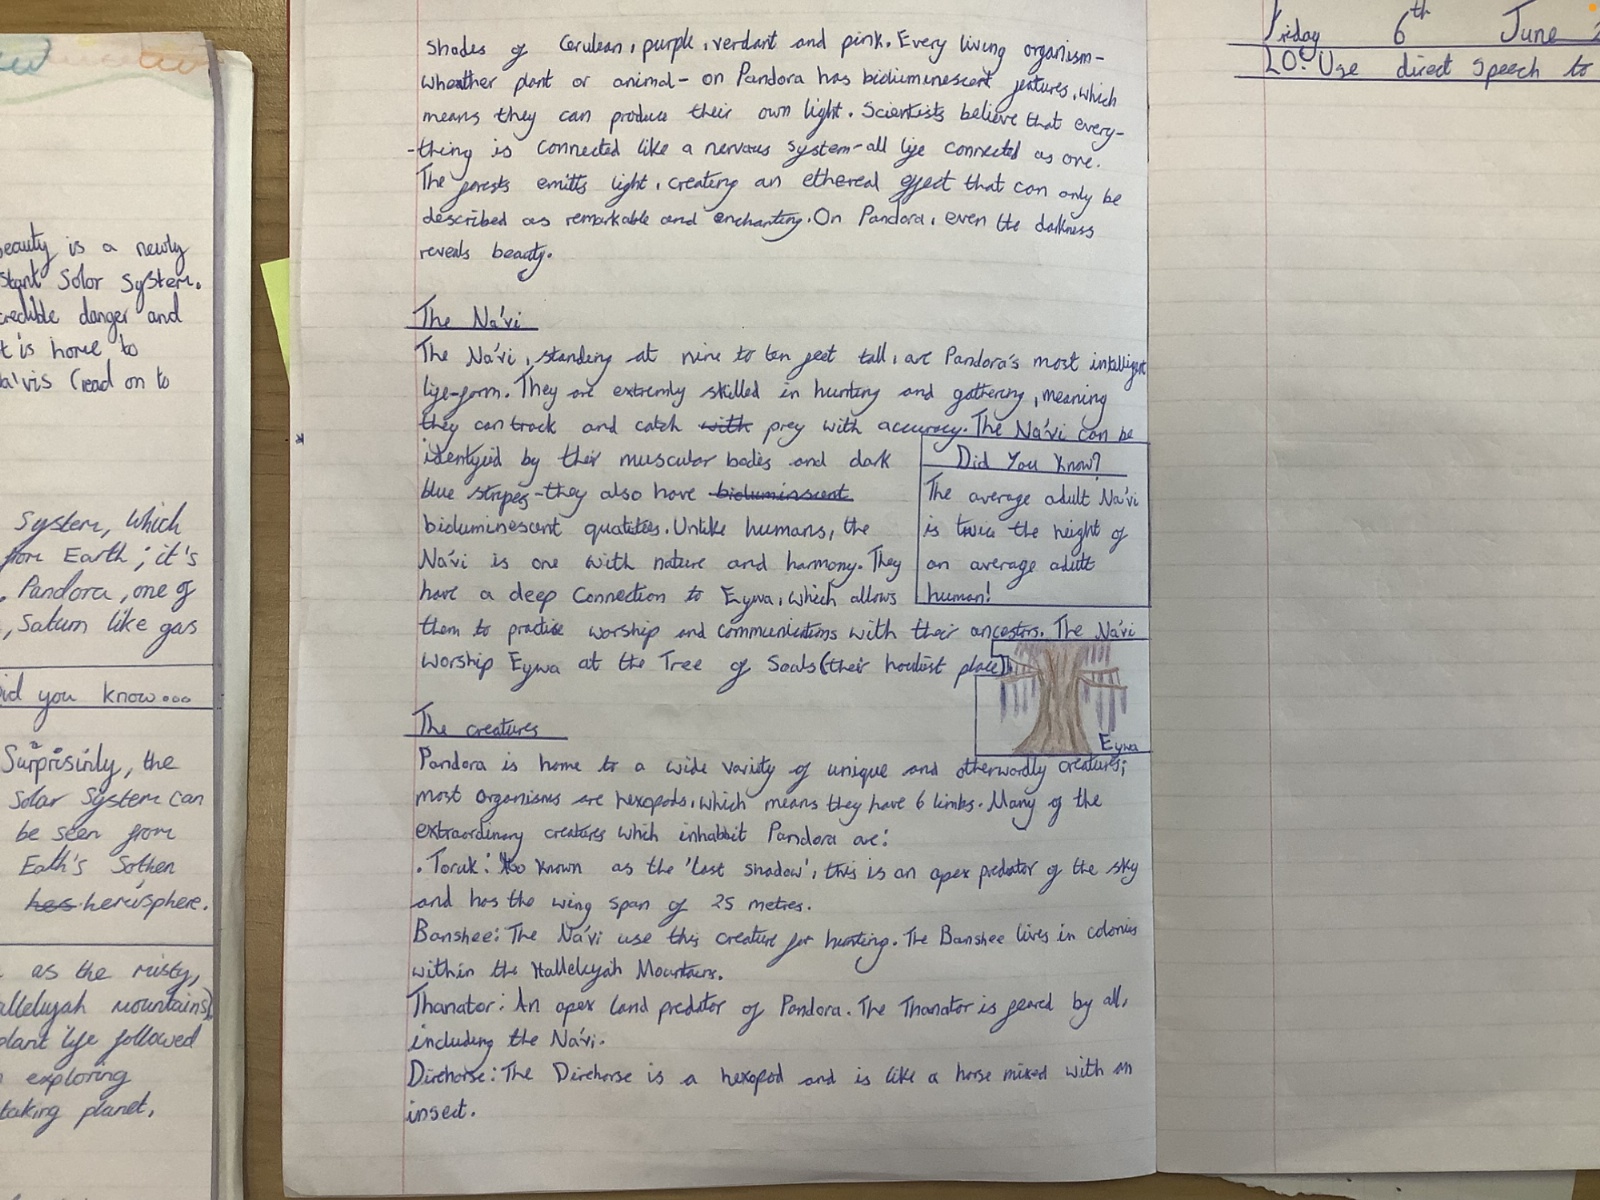 eauty is a newly
stant Solar System.
credible danger and
t is home to
Na'vis (read on to
System, which
from Earth; it's
. Pandora, one of
, Saturn like gas
Did you know...
Surprisinly, the
Solar System can
be seen from
Eath's Sothen
hes hemisphere.
as the misty,
alleluyah mountains)
plant life followed
exploring
taking planet,
shades of Cerulean, purple, verdant and pink. Every living organism-
wheather plant or animal- on Pandora has bioluminescent features, which
means they can produce their own light. Scientists believe that every-
-thing is connected like a nervous system-all life connected as one.
The forests emitts light, creating an ethereal effect that can only be
described as remarkable and enchanting. On Pandora, even the darkness
reveals beauty.
The Na'vi
The Na'vi, standing at nine to ten feet tall, are Pandora's most intelligent
life-form. They are extremly skilled in hunting and gathering, meaning
they can track and catch with prey with accuracy. The Na'vi can be
identyied by their muscular bodies and dark
blue stripes-they also have bioluminscent
bioluminescent quatities. Unlike humans, the
Na'vi is one with nature and harmony. They
have a deep connection to Eywa, which allows
them to practise worship and communications with their ancestors. The Na'vi
worship Eywa at the Tree of Souls (their houliest place)
Did You Know?
The average adult Na'vi
is twice the height of
an average adult
human!
Eywa
The creatures
Pandora is home to a wide variety of unique and otherwordly creatures;
most organisms are hexopods, which means they have 6 limbs. Many of the
extraordinary creatures which inhabbit Pandora are:
. Toruk: known as the 'last shadow', this is an apex predator of the sky
and has the wing span of 25 metres.
Banshee: The Na'vi use this creature for hunting. The Banshee lives in colonies
within the Halleluyah Mountains.
Thanator: An apex land predator of Pandora. The Thanator is feared by all,
including the Na'vi.
Direhorse: The Direhorse is a hexopod and is like a horse mixed with an
insect.
Friday 6th June
LO: Use direct speech to